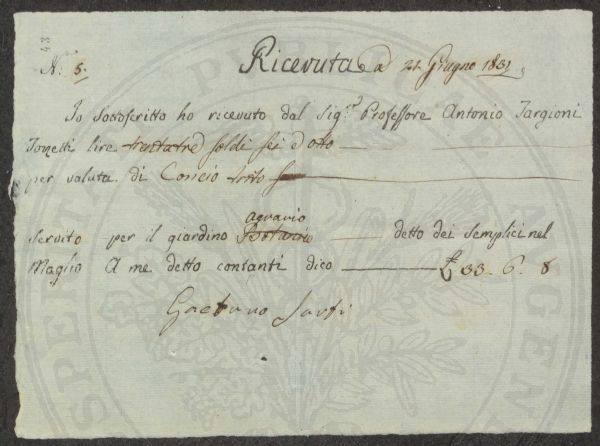 43
N.° 5.
Ricevuta a 21 Giugno 1831
Io Sottoscritto ho ricevuto dal Sig.re Professore Antonio Targioni
Tozzetti lire trentatre soldi sei d otto
per valuta di Concio trito
agrario
servito per il giardino Botanico detto dei Semplici nel
Maglio A me detto contanti dico £ 33. 6. 8
Gaetano Sarti